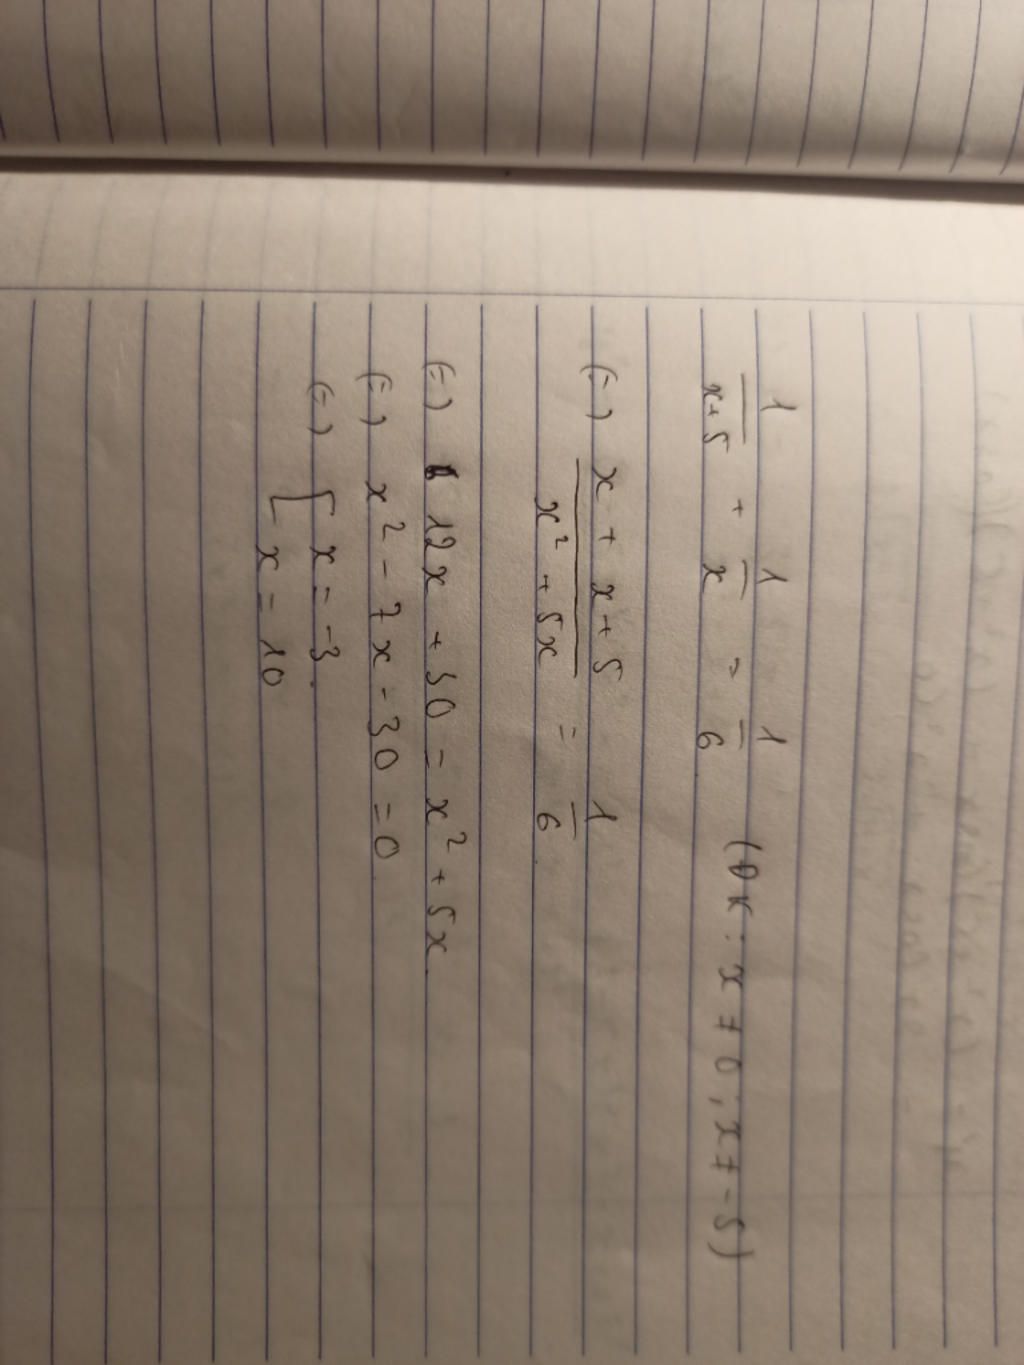 1/(x+5) + 1/x = 1/6 (ĐK: x ≠ 0; x ≠ -5)
(=) (x + x+5)/(x² + 5x) = 1/6
(=) 12x + 30 = x² + 5x
(=) x² - 7x - 30 = 0
(=) [ x = -3
x = 10